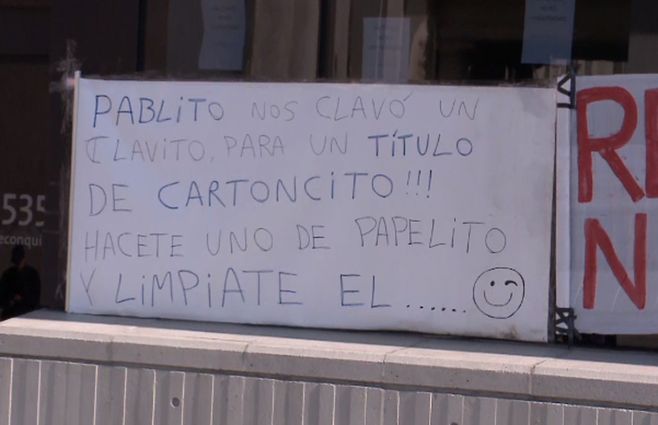 PABLITO NOS CLAVÓ UN
CLAVITO, PARA UN TÍTULO
DE CARTONCITO!!!
HACETE UNO DE PAPELITO
Y LIMPIATE EL......
535
econqui
RE
N